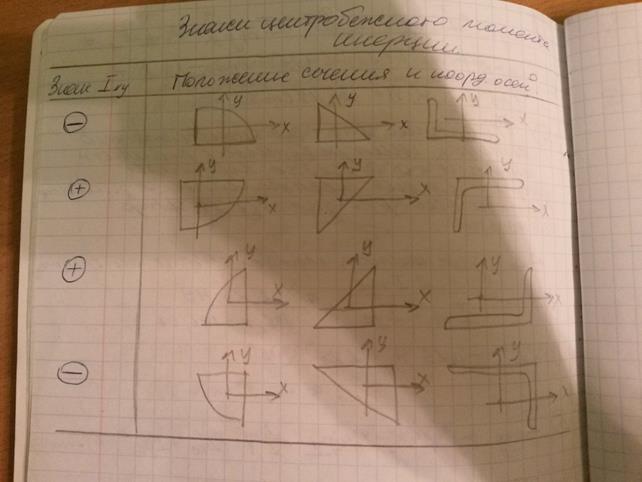 Знаки центробежного момента
инерции
Знак Ixy Положение сечения и коорд осей
⊖ y x y x y x
⊕ y x y x y x
⊕ y x y x y x
⊖ y x y x y x